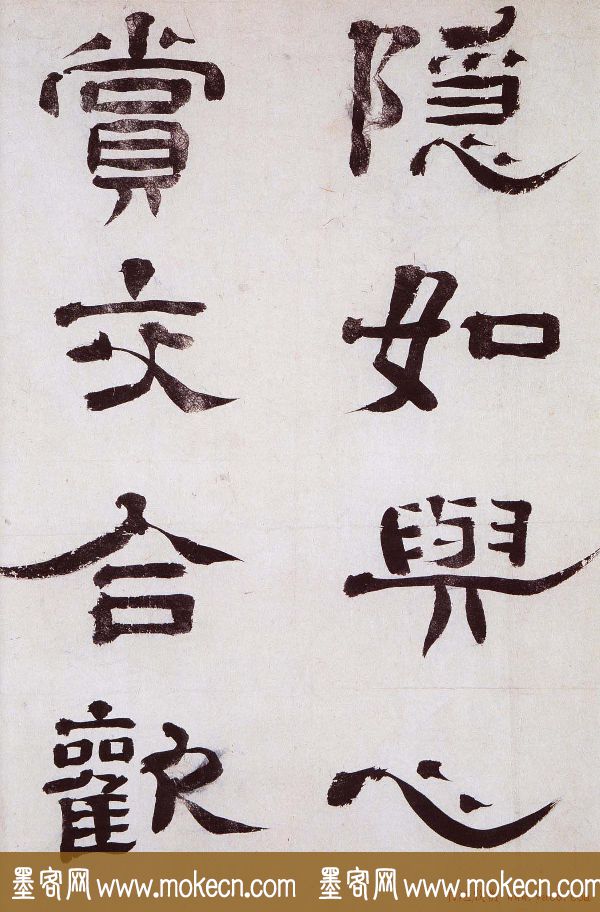 隱如與心
賞交合歡
墨客网 www.mokecn.com 墨客网 www.mokecn.com